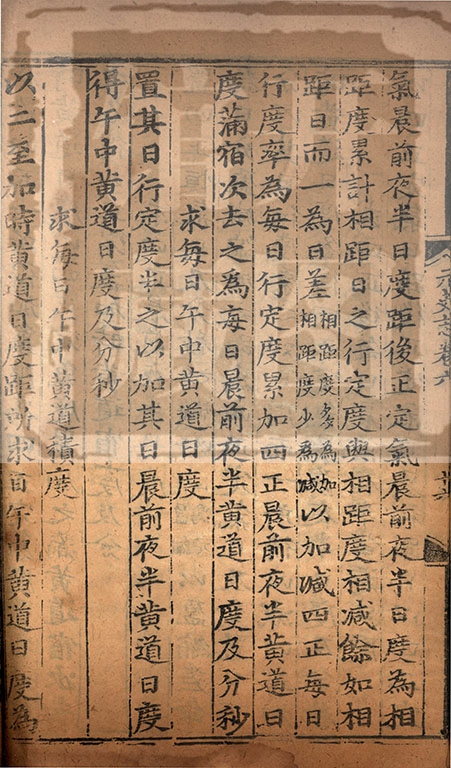 元史志卷六
氣晨前夜半日度距後正定氣晨前夜半日度為相
距度累計相距日之行定度與相距度相減餘如相
距日而一為日差相距度多為加相距度少為減以加減四正每日
行度率為每日行定度累加四正晨前夜半黄道日
度滿宿次去之爲每日晨前夜半黄道日度及分秒
求每日午中黄道日度
置其日行定度半之以加其日晨前夜半黄道日度
得午中黄道日度及分秒
求每日午中黄道積度
以二至加時黄道日度距所求日午中黄道日度為